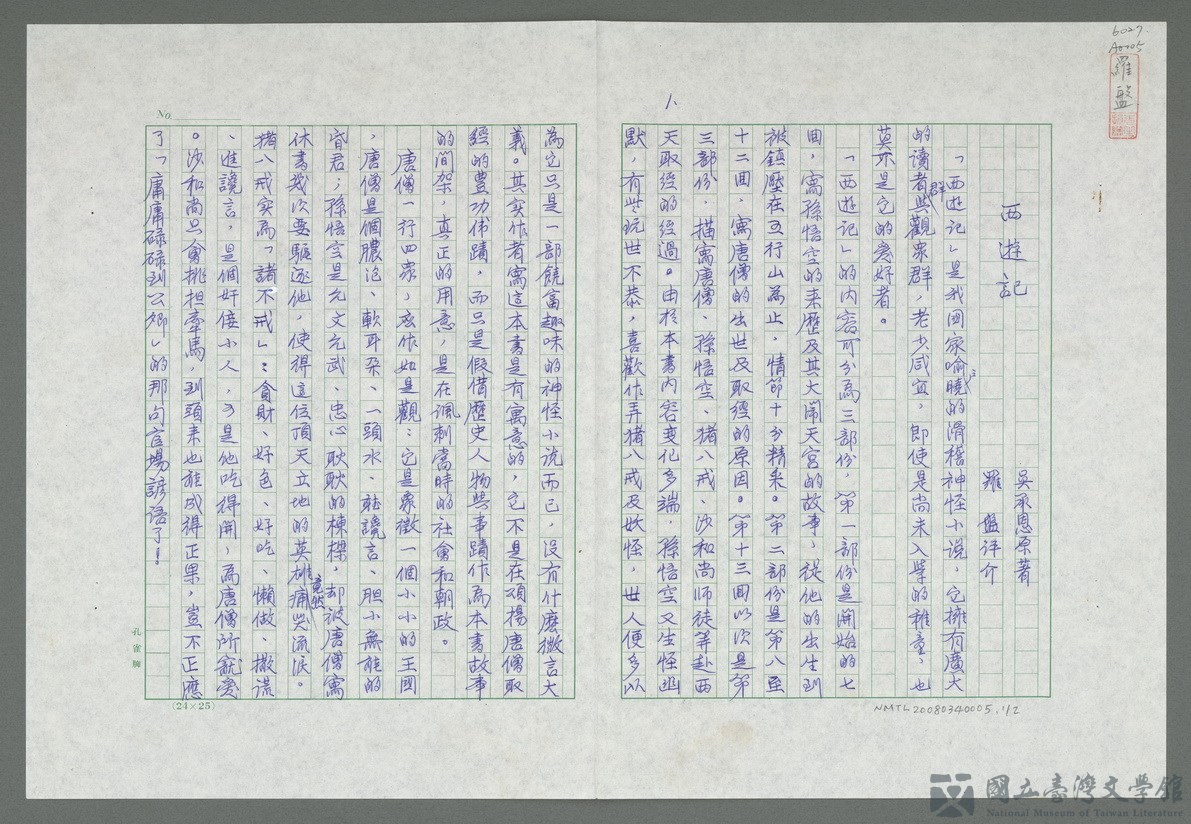 6027.
A0705
羅盤
1、
西遊記
吳承恩原著
羅盤評介
「西遊記」是我國家喻戶曉的滑稽神怪小說,它擁有廣大
的讀者群與觀眾群,老少咸宜,即使是尚未入學的稚童,也
莫不是它的愛好者。
「西遊記」的內容可分為三部份,第一部份是開始的七
回,寫孫悟空的來歷及其大鬧天宮的故事,從他的出生到
被鎮壓在五行山為止,情節十分精采。第二部份是第八至
十二回,寫唐僧的出世及取經的原因。第十三回以次是第
三部份,描寫唐僧、孫悟空、猪八戒、沙和尚師徒等赴西
天取經的經過。由於本書內容變化多端,孫悟空又生怪幽
默,有些玩世不恭,喜歡作弄猪八戒及妖怪,世人便多以
為它只是一部饒富趣味的神怪小說而已,沒有什麼微言大
義。其實作者寫這本書是有寓意的,它不是在頌揚唐僧取
經的豐功伟蹟,而只是假借歷史人物與事蹟作為本書故事
的間架,真正的用意,是在諷刺當時的社會和朝政。
唐僧一行四眾,應作如是觀:它是象徵一個小小的王國
,唐僧是個膿包、軟耳朵、一頭水、聽讒言、胆小無能的
昏君;孫悟空是允文允武、忠心耿耿的棟樑,却被唐僧寫
休書幾次要驅逐他,使得這位頂天立地的英雄竟然痛哭流淚。
猪八戒实為「諸不戒」:貪財、好色、好吃、懶做、撒謊
、進讒言,是個奸佞小人,可是他吃得開,為唐僧所寵愛
。沙和尚只會挑担牽馬,到頭來也能成得正果,豈不正應
了「庸庸碌碌到公卿」的那句官場諺語了!
No.
(24×25)
孔雀牌
NMTL20080340005,1/2
國立臺灣文學館
National Museum of Taiwan Literature